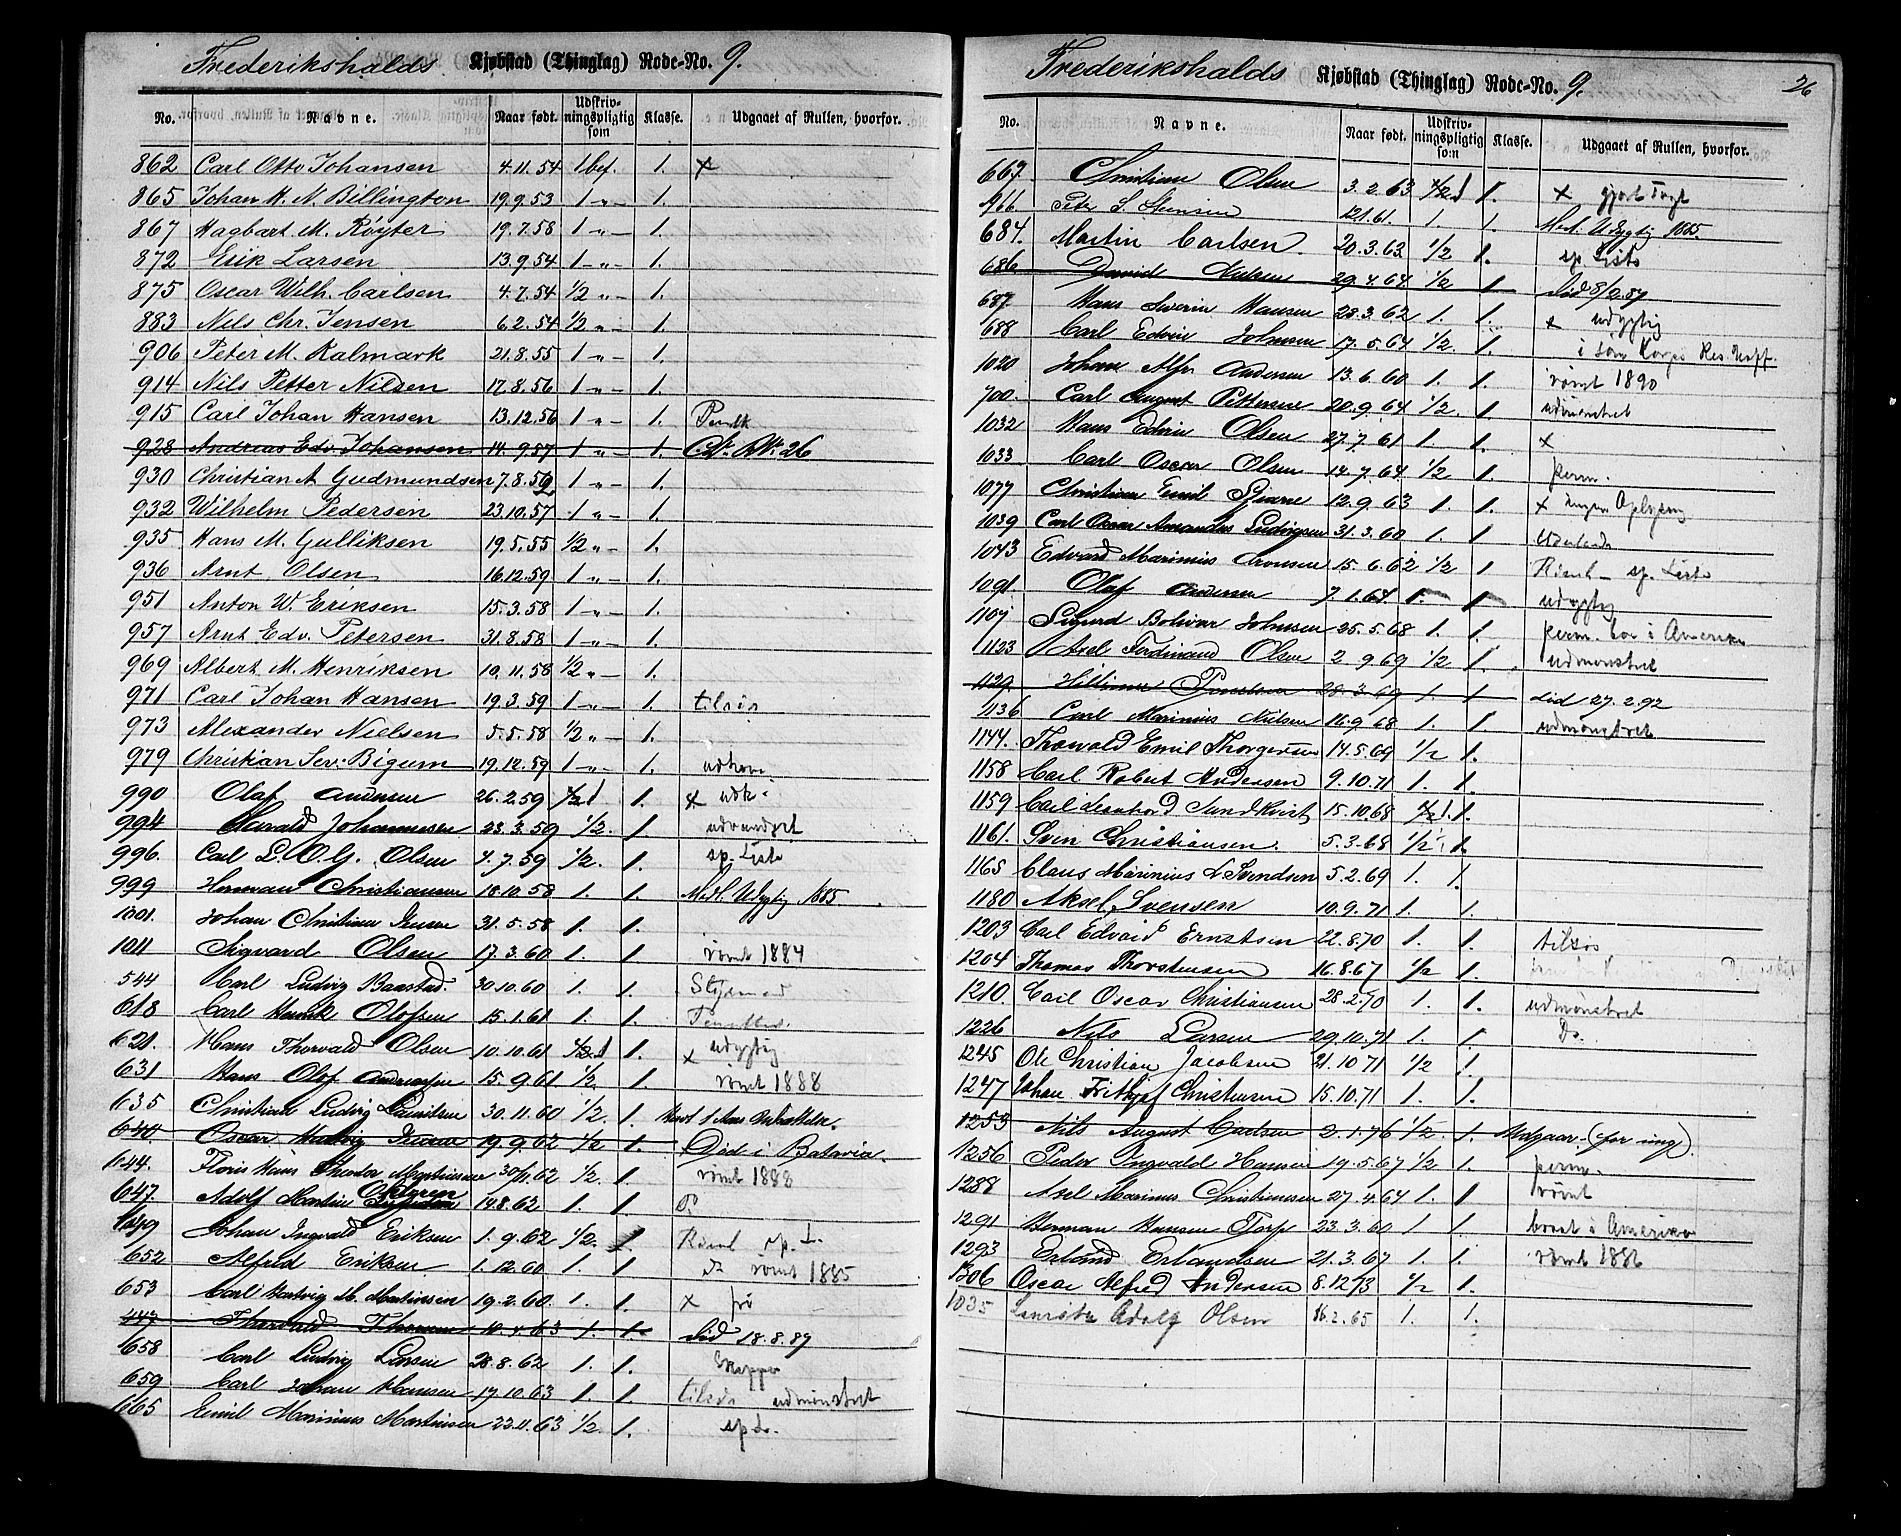 Frederikshalds Kjøbstad (Thinglag) Rode-No. 9.
No. Navne. Naar født. Udskriv-ningspligtig som Klasse. Udgaaet af Rullen, hvorfor.
862 Carl Otto Johansen 4.11.54 1 bef. 1. x
865 Johan H. N. Billington 19.9.53 1 -"- 1.
867 Hagbart M. Röyter 19.7.58 1 -"- 1.
872 Erik Larsen 13.9.54 1 -"- 1.
875 Oscar Wilh. Carlsen 4.7.54 1/2 "- 1.
883 Nils Chr. Jensen 6.2.54 1/2 "- 1.
906 Peter M. Kalmark 21.8.55 1 "- 1.
914 Nils Petter Nilsen 17.8.56 1 "- 1.
915 Carl Johan Hansen 13.12.56 1 "- 1.
928 Andreas Edv. Johansen 14.9.57 1 "- 1. No. 26
930 Christian A. Gudmundsen 7.8.59 1 "- 1.
932 Wilhelm Pedersen 23.10.57 1 "- 1.
935 Hans M. Gulliksen 19.5.55 1/2 "- 1.
936 Arnt Olsen 16.12.59 1 "- 1.
951 Anton W. Eriksen 15.3.58 1 "- 1.
957 Arnt Edv. Petersen 31.8.58 1 "- 1.
969 Albert M. Henriksen 19.11.58 1/2 "- 1.
971 Carl Johan Hansen 19.3.59 1 -"- 1. tilsøs
973 Alexander Nielsen 5.5.58 1/2 "- 1.
979 Christian Sev. Bigum 19.12.59 1 -"- 1.
990 Olaf Andersen 26.2.59 1 1. x udk.
994 Johannesen 23.3.59 1/2. 1. udvandret
996. Carl L. O. G. Olsen 4.7.59 1/2. 1. sp. Liste
999 Herman Christiansen 18.10.58 1. 1. Udygtig 1885
1001. Johan Christian 31.5.58 1. 1.
1011 Sigvard Olsen 17.3.60 1. 1. rømt 1884
544 Carl Ludvig Baastad. 30.10.60 1. 1.
618 Carl Henrik Olofsen 15.1.61 1. 1.
621. Hans Thorvald Olsen 10.10.61 1 1. x udygtig
631 Hans Olof Andreasen 15.9.61 1/2. 1. rømt 1888
635 Christian Ludvig Lauritsen 30.11.60 1/2. 1.
640. Oscar Hartvig 19.9.62 1/2 1. Død i Batavia.
644. Floris Hans Theodor 30/11.62 1/2. 1. rømt 1888
647. Adolf Martin 14.8.62 1. 1.
649 Johan Ingvald Eriksen 1.9.62 1/2. 1. Rømt sp. L.
652 Alfred Eriksen 1.12.60 1. 1. rømt 1885
653 Carl Hartvig M. Martinsen 19.2.60. 1. 1. x
447 Thorvald 10.4.63 1. 1. død 18.8.89
658 Carl Ludvig Larsen 28.8.62 1. 1.
659 Carl Johan Hansen 17.10.63 1. 1. udmønstret
665 Emil Marinius Martinsen 22.11.63 1/2. 1. sp. L.
Frederikshalds Kjøbstad (Thinglag) Rode-No. 9. 26
No. Navne. Naar født. Udskriv-ningspligtig som Klasse. Udgaaet af Rullen, hvorfor.
667 Christian Olsen 3.2.63 1 1. x gjort Togt
966 Petr S. 12.1.61. 1. 1. Udygtig 1885.
684. Martin Carlsen. 20.3.63 1/2 1. sp. Liste
686 David 29.4.64 1/2 1
687. Hans Severin Hansen 28.3.62 1. 1. x udygtig
688 Carl Edvin Johnsen 17.5.64 1/2. 1.
1020 Johan Alfr. Andersen 13.6.60 1. 1. rømt 1890
700. Carl August Pettersen 20.9.64 1/2. 1. udmønstret
1032 Hans Edvin Olsen 27.7.61 1. 1. x
1033 Carl Oscar Olsen 14.7.64 1/2 1. perm.
1077 Christian Emil 12.9.63 1. 1. x ingen Oplysning
1039 Carl Oscar Amandus Ludvigsen 31.3.60 1. 1 Udenlands
1043 Edvard Marinius 15.6.62 1/2 1 Rømt - sp. Liste
1091. Olaf Andersen 7.1.64 1. 1 udygtig
1107 Sigurd Bolivar Johnsen 25.5.68 1. 1. perm. bor i Amerika
1123 Axel Ferdinand Olsen 2.9.69 1/2 1. udmønstret
1129. 28.3.69 1. 1 død 27.2.92
1136 Carl Marinius Nielsen 16.9.68 1. 1. udmønstret
1144. Thorvald Emil Thorgersen 14.5.69 1/2 1.
1158 Carl Robert Andersen 9.10.71 1. 1.
1159 Carl Leonhard Sundkvist 15.10.68 1. 1.
1161. Sven Christiansen. 5.3.68 1/2 1.
1165 Claus Marinius L. Svendsen 5.2.69 1. 1.
1180 Aksel Svensen 10.9.71 1. 1.
1203 Carl Edvard Ernstsen 22.8.70 1. 1. tilsøs
1204 Thomas Thorstensen 16.8.67 1/2 1.
1210. Carl Oscar Christiansen 28.2.70 1. 1. udmønstret
1226 Nils Larsen 29.10.71 1. 1. Do.
1245 Ole Christian Jacobsen 21.10.71 1/2 1.
1247 Johan Frithjof Christensen 15.10.71 1. 1.
1253 Nils August Carlsen 2.1.76 1/2. 1. Udgaar. (for ung)
1256 Peder Ingvald Hansen 19.5.67 1/2 1. perm.
1288 Axel Marinus Christiansen 27.4.64 1. 1 rømt
1291 Herman Hansen Torp 23.3.60 1. 1. bosat i Amerika
1293 Erland Erlandsen 21.3.67 1. 1. rømt 1886
1306 Oscar Alfred Andersen 8.12.73 1/2 1.
1035 Lauritz Adolf Olsen 16.2.65 1. 1.